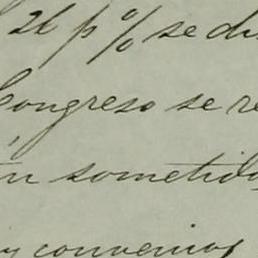 26 p% se di
Congreso se re
ón sometida
y convenios